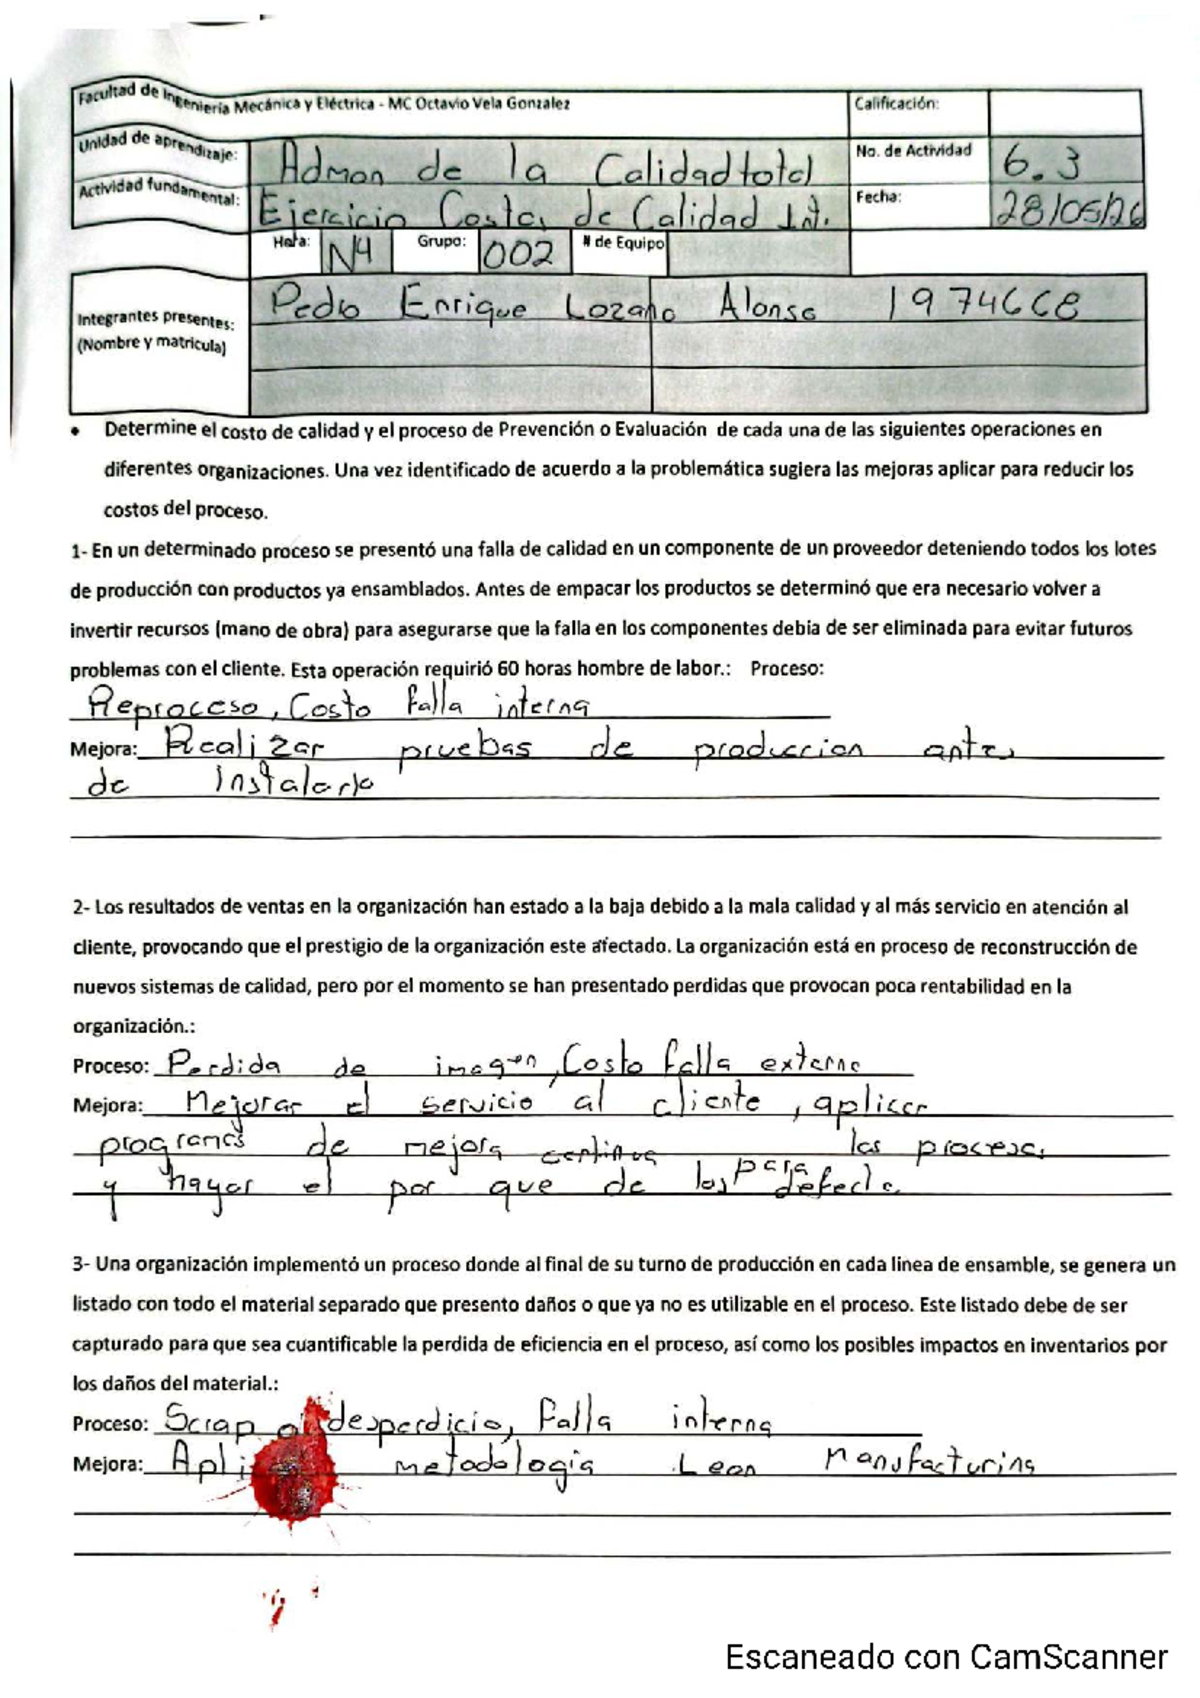 Facultad de Ingeniería Mecánica y Eléctrica - MC Octavio Vela Gonzalez
Calificación:
Unidad de aprendizaje: Admon de la Calidad total
No. de Actividad 6.3
Actividad fundamental: Ejercicio Costos de Calidad Int.
Fecha: 28/05/26
Hora: N4 Grupo: 002 # de Equipo
Integrantes presentes:
(Nombre y matricula)
Pedro Enrique Lozano Alonso 1974668
• Determine el costo de calidad y el proceso de Prevención o Evaluación de cada una de las siguientes operaciones en
diferentes organizaciones. Una vez identificado de acuerdo a la problemática sugiera las mejoras aplicar para reducir los
costos del proceso.
1- En un determinado proceso se presentó una falla de calidad en un componente de un proveedor deteniendo todos los lotes
de producción con productos ya ensamblados. Antes de empacar los productos se determinó que era necesario volver a
invertir recursos (mano de obra) para asegurarse que la falla en los componentes debia de ser eliminada para evitar futuros
problemas con el cliente. Esta operación requirió 60 horas hombre de labor.: Proceso:
Reproceso, Costo falla interna
Mejora: Realizar pruebas de produccion antes
de instalarlo
2- Los resultados de ventas en la organización han estado a la baja debido a la mala calidad y al más servicio en atención al
cliente, provocando que el prestigio de la organización este afectado. La organización está en proceso de reconstrucción de
nuevos sistemas de calidad, pero por el momento se han presentado perdidas que provocan poca rentabilidad en la
organización.:
Proceso: Perdida de imagen, Costo falla externa
Mejora: Mejorar el servicio al cliente, aplicar
programas de mejora continua los procesos
para
y hayar el por que de los defectos
3- Una organización implementó un proceso donde al final de su turno de producción en cada linea de ensamble, se genera un
listado con todo el material separado que presento daños o que ya no es utilizable en el proceso. Este listado debe de ser
capturado para que sea cuantificable la perdida de eficiencia en el proceso, así como los posibles impactos en inventarios por
los daños del material.:
Proceso: Scrap desperdicio, Falla interna
Mejora: metodologia Lean Manufacturing
Escaneado con CamScanner